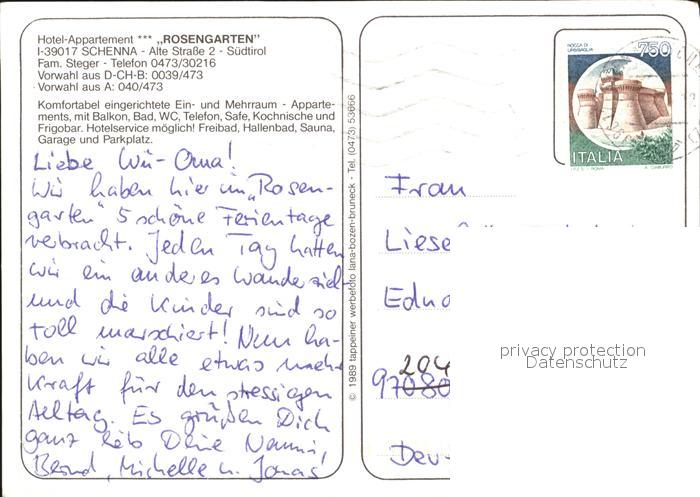 Hotel-Appartement *** „ROSENGARTEN"
I-39017 SCHENNA - Alte Straße 2 - Südtirol
Fam. Steger - Telefon 0473/30216
Vorwahl aus D-CH-B: 0039/473
Vorwahl aus A: 040/473
Komfortabel eingerichtete Ein- und Mehrraum - Apparte-
ments, mit Balkon, Bad, WC, Telefon, Safe, Kochnische und
Frigobar. Hotelservice möglich! Freibad, Hallenbad, Sauna,
Garage und Parkplatz.
Liebe Wü-Oma!
Wir haben hier im „Rosen-
garten" 5 schöne Ferientage
verbracht. Jeden Tag hatten
wir ein anderes Wanderziel
und die Kinder sind so
toll marschiert! Nun ha-
ben wir alle etwas mehr
Kraft für den stressigen
Alltag. Es grüßen Dich
ganz lieb Deine Nanni,
Bernd, Michelle u. Jonas
© 1989 tappeiner werbefoto lana-bozen-bruneck - Tel. (0473) 53666
ROCCA DI
URBISAGLIA
750
ITALIA
I.P.Z.S. - ROMA
Frau
Liese
Edua
204
97080
Deu
privacy protection
Datenschutz